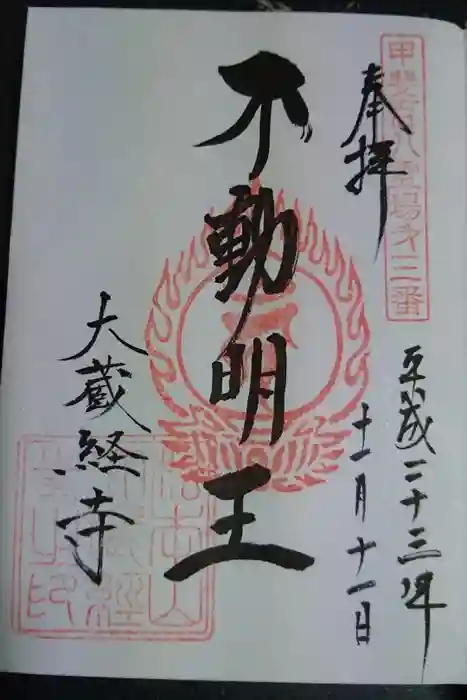 甲斐百八霊場第三番
奉拝
平成二十三年
十一月十一日
不動明王
大蔵経寺